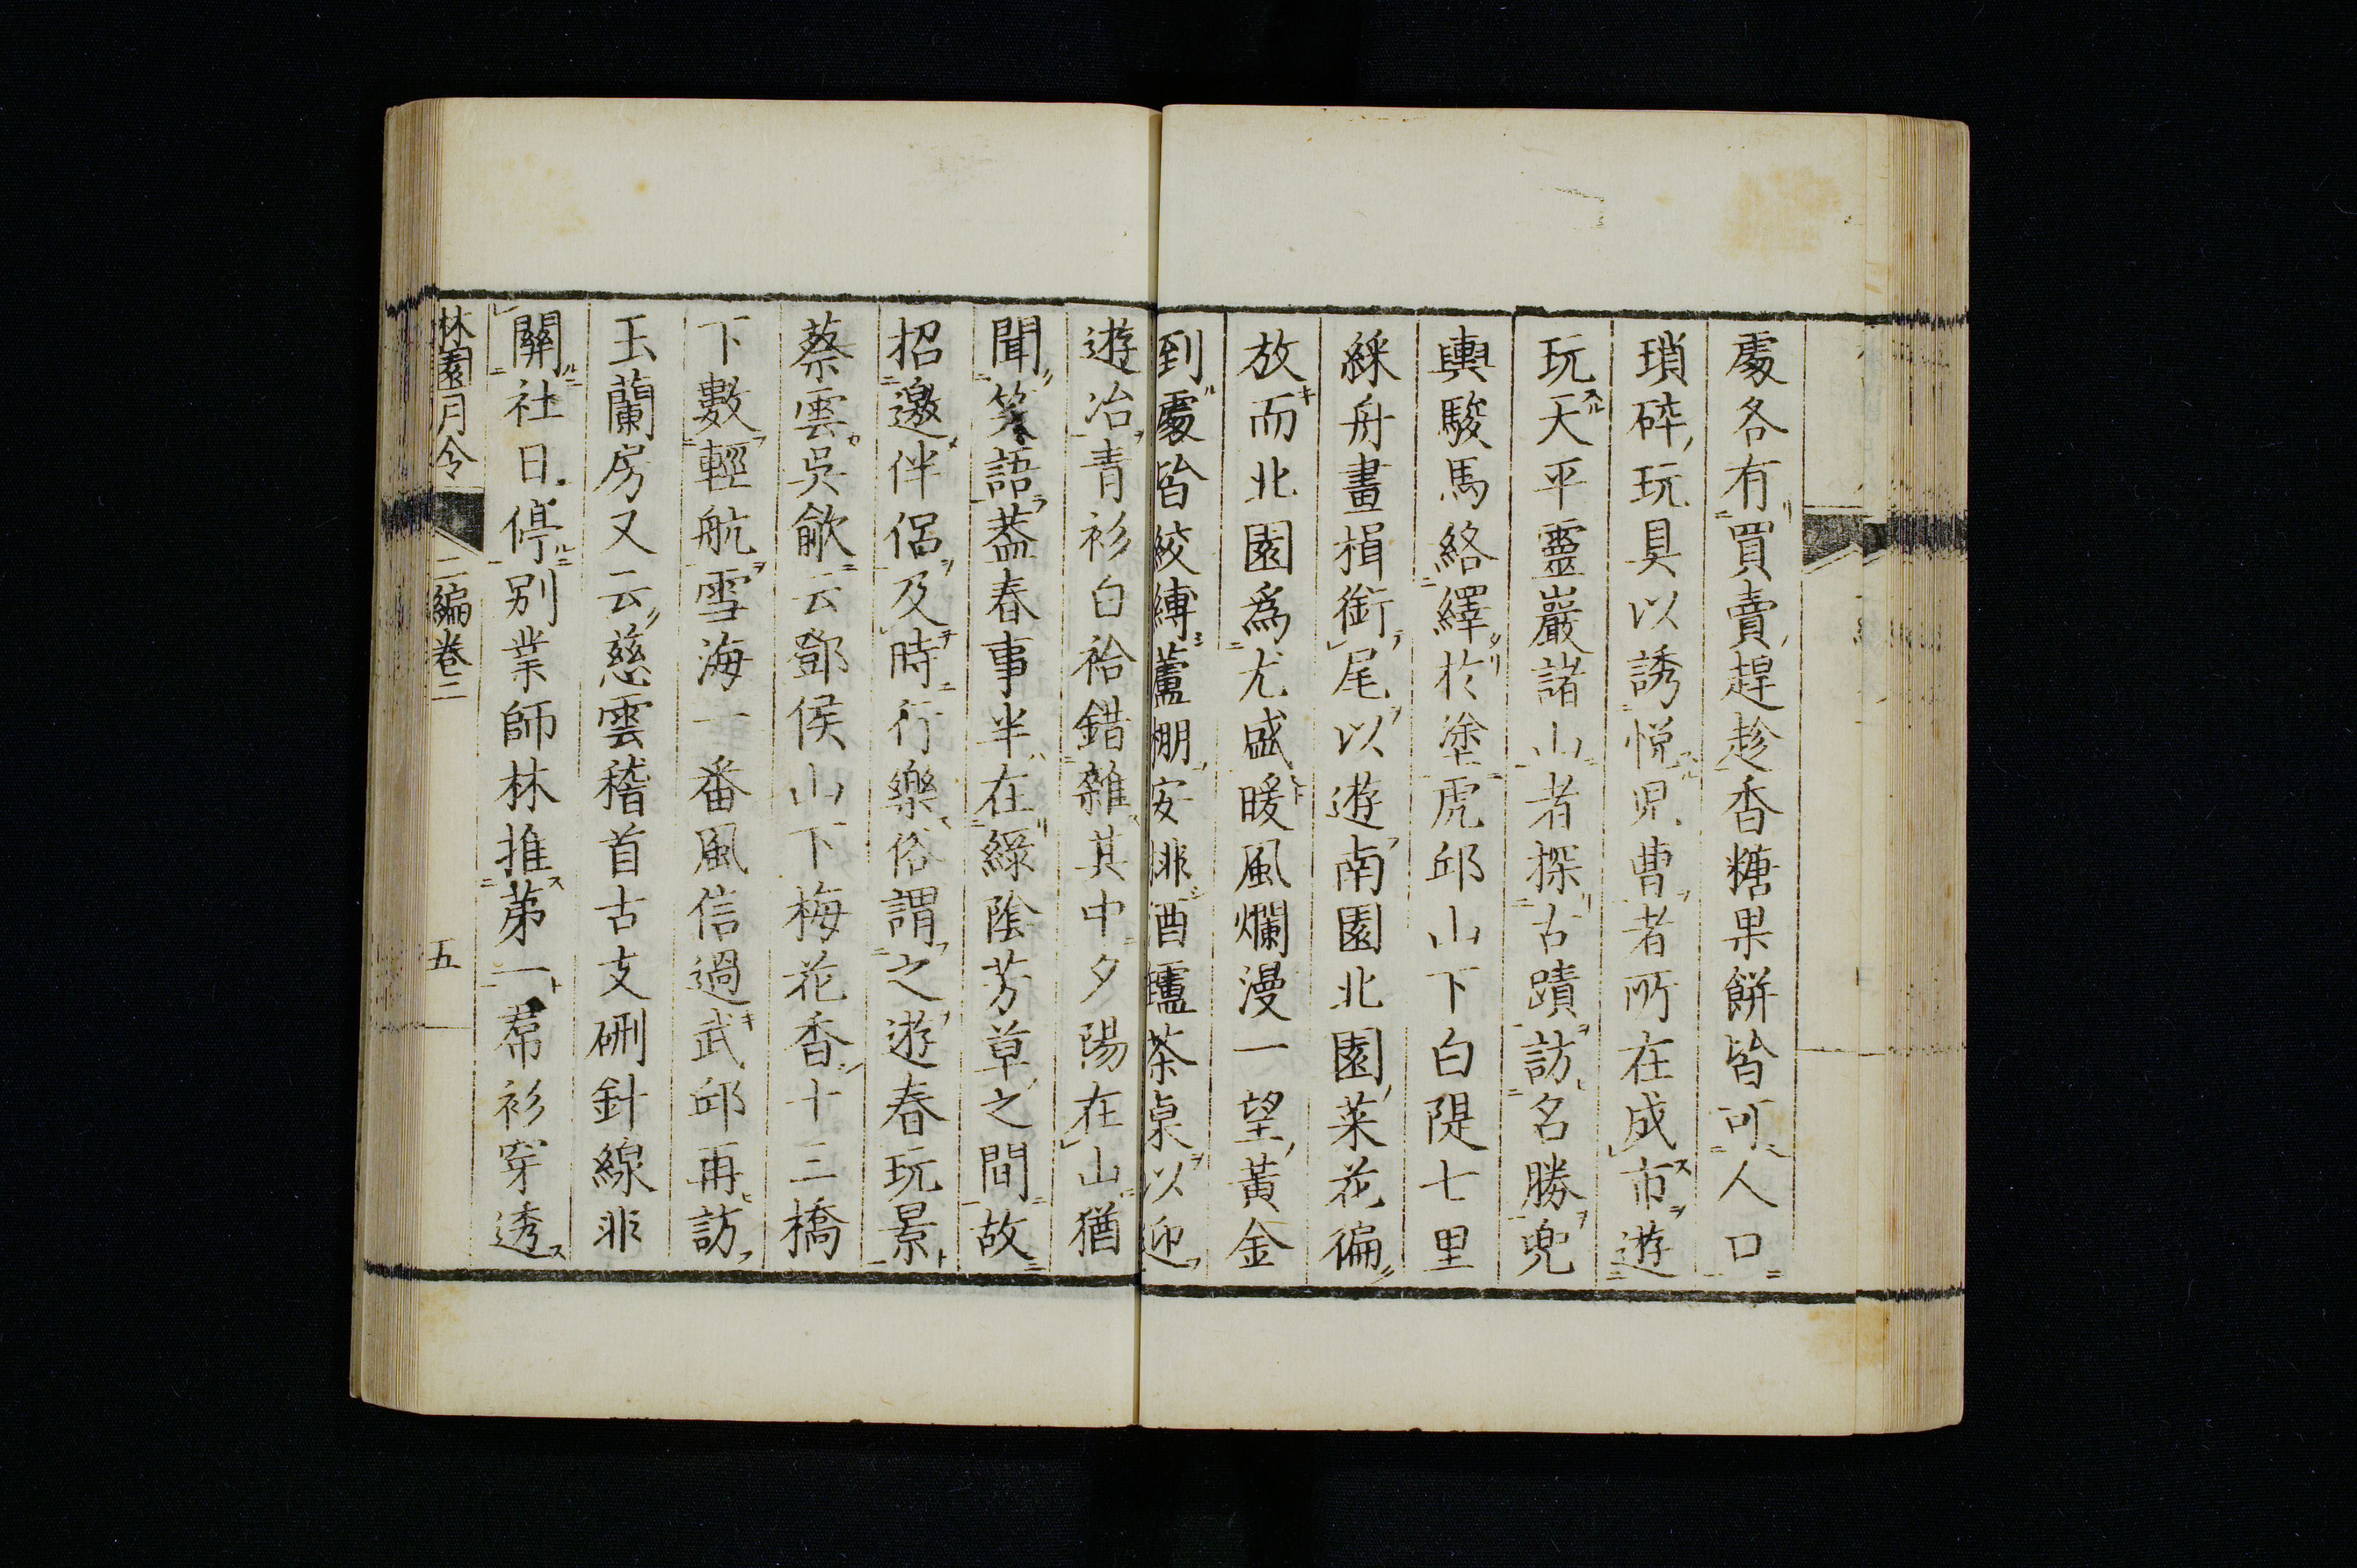 處各有買賣趕趁香糖果餅皆可人口
瑣碎玩具以誘悅児曹者所在成市遊
玩天平靈巖諸山者探古蹟訪名勝兜
輿駿馬絡繹於塗虎邱山下白隄七里
綵舟畫楫銜尾以遊南園北園菜花徧
放而北園爲尤盛暖風爛漫一望黃金
到處皆絞縛蘆棚安排酒壚茶桌以迎
遊冶青衫白袷錯雜其中夕陽在山猶
聞笑語蓋春事半在綠陰芳草之間故
招邀伴侶及時行樂俗謂之遊春玩景
蔡雲吳歈云鄧侯山下梅花香十三橋
下數輕航雪海一番風信過武邱再訪
玉蘭房又云慈雲稽首古支硎針線非
關社日停別業師林推第一羣衫穿透
林園月令
二編卷三
五